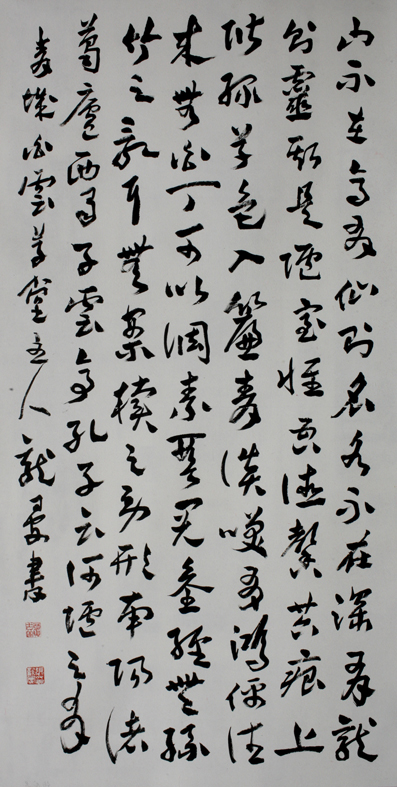 山不在高有仙則名水不在深有龍
則靈斯是陋室惟吾德馨苔痕上
階綠草色入簾青談笑有鴻儒往
來無白丁可以調素琴閱金經無絲
竹之亂耳無案牘之勞形南陽諸
葛廬西蜀子雲亭孔子云何陋之有
城白雲草堂主人龍書